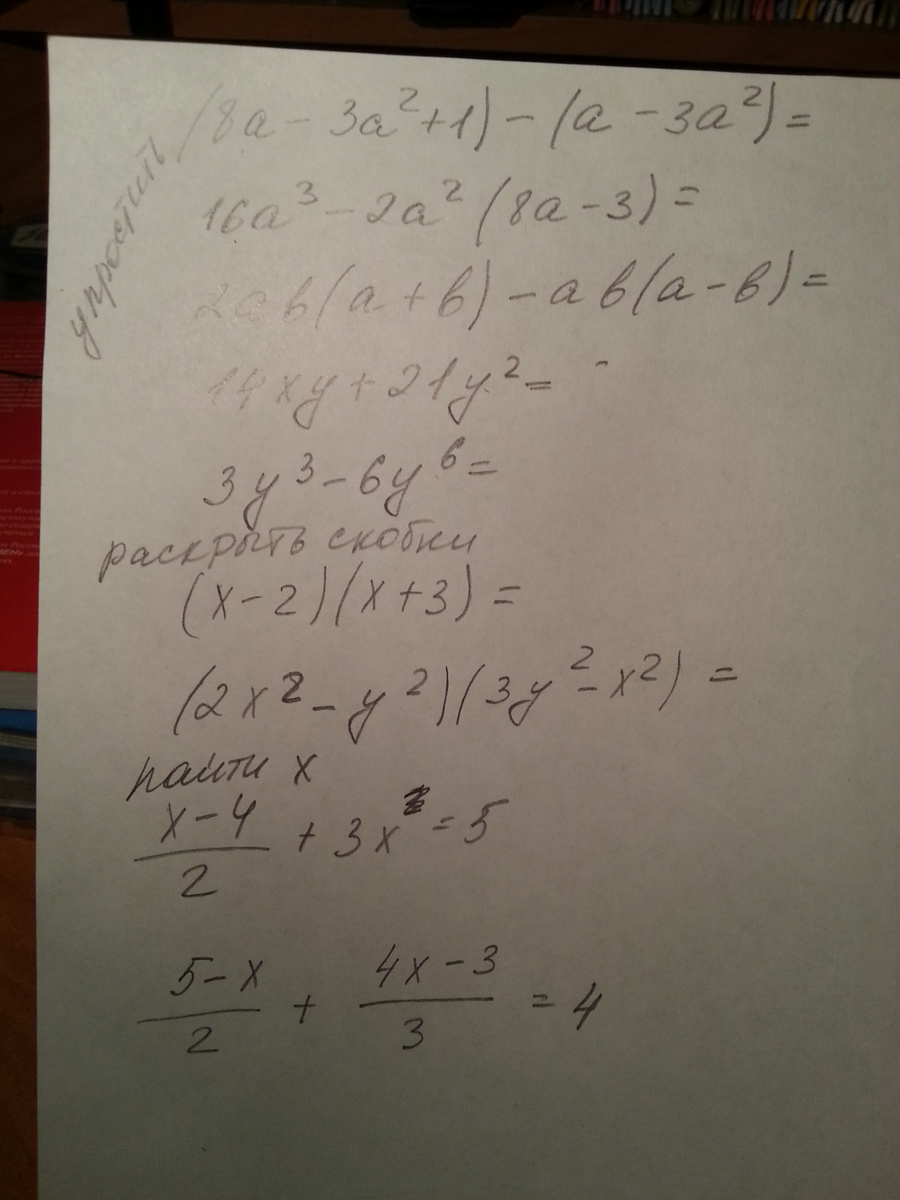 упростить
(8a - 3a² + 1) - (a - 3a²) =
16a³ - 2a² (8a - 3) =
2ab(a + b) - ab(a - b) =
14xy + 21y² =
3y³ - 6y⁶ =
раскрыть скобки
(x - 2)(x + 3) =
(2x² - y²)(3y² - x²) =
найти x
(x - 4)/2 + 3x = 5
(5 - x)/2 + (4x - 3)/3 = 4